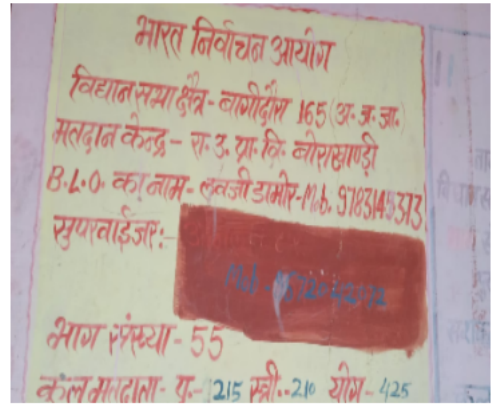 भारत निर्वाचन आयोग
विधानसभा क्षेत्र - बागीदौरा 165 (अ.ज.जा.)
मतदान केन्द्र - रा.उ.प्रा.वि. बोराखाण्डी
B.L.O. का नाम - लवजी डामोर - Mob. 9783145373
सुपरवाईजर:-
Mob -
भाग संख्या - 55
कुल मतदाता - पु.- 215 स्त्री.- 210 योग - 425